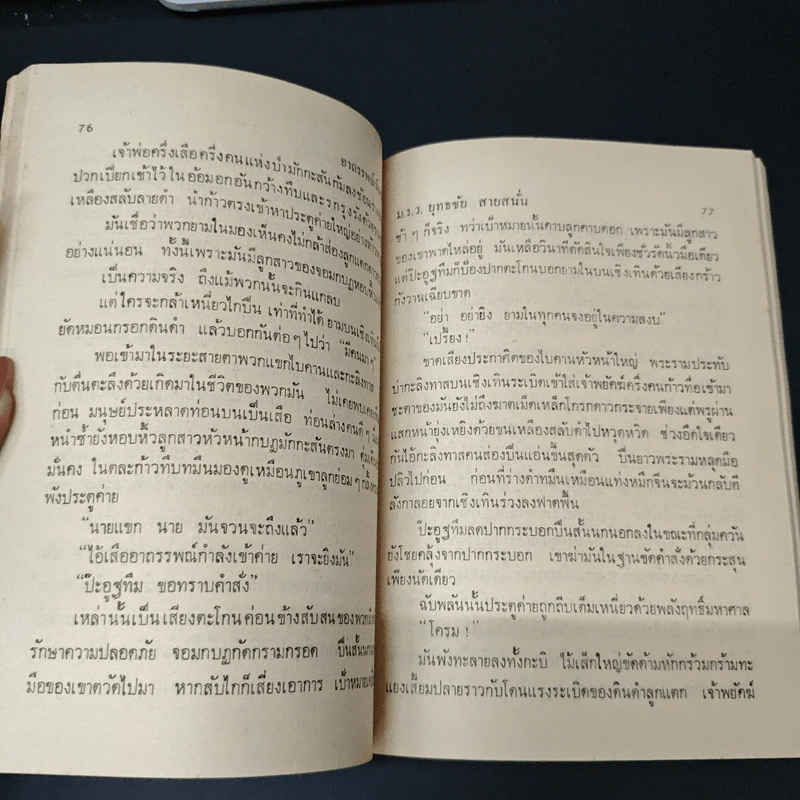 76
อาถรรพณ์
เจ้าพ่อครึ่งเสือครึ่งคนแห่งป่ามักกะสันก้มลงช้อนร่าง
ปวกเปียกเข้าไว้ในอ้อมอกอันกว้างทึบและรกรุงรังด้วยขน
เหลืองสลับลายดำ นำก้าวตรงเข้าหาประตูค่ายใหญ่อย่าง
มันเชื่อว่าพวกยามในมองเห็นคงไม่กล้าส่องลูกแตก
อย่างแน่นอน ทั้งนี้เพราะมันมีลูกสาวของจอมกบฏหอบหิ้ว
เป็นความจริง ถึงแม้พวกนั้นจะกินแกลบ
แต่ใครจะกล้าเหนี่ยวไกปืน เท่าที่ทำได้ ยามบนเชิงเทิน
ยัดหมอนกรอกดินดำ แล้วบอกกันต่อๆ ไปว่า “มีคนมา”
พอเข้ามาในระยะสายตาพวกแขกไบคานและกะลิงทาส
กับตื่นตะลึงด้วยเกิดมาในชีวิตของพวกมัน ไม่เคยพบเคย
ก่อน มนุษย์ประหลาดท่อนบนเป็นเสือ ท่อนล่างคนดีๆ
หนำซ้ำยังหอบหิ้วลูกสาวหัวหน้ากบฏมักกะสันตรงมา
มั่นคง ในตละก้าวทึบทมึนมองดูเหมือนภูเขาลูกย่อมๆ
พังประตูค่าย
“นายแขก นาย มันจวนจะถึงแล้ว”
“ไอ้เสืออาถรรพณ์กำลังเข้าค่าย เราจะยิงมัน”
“ป๊ะอูฐทึม ขอทราบคำสั่ง”
เหล่านั้นเป็นเสียงตะโกนค่อนข้างสับสนของพวก
รักษาความปลอดภัย จอมกบฏกัดกรามกรอด ปืนสั้น
มือของเขาตวัดไปมา หากสับไกก็เสี่ยงเอาการ เป้าหมาย
ม.ร.ว. ยุทธชัย สายสนั่น
77
ช้าๆ ก็จริง ทว่าเป้าหมายนั้นคาบลูกคาบดอก เพราะมันมีลูกสาว
ของเขาพาดไหล่อยู่ มันเหลือวินาทีตัดสินใจเพียงชั่วรัดนิ้วมือเดียว
แต่ป๊ะอูฐทึมก็ป้องปากตะโกนบอกยามในบนเชิงเทินด้วยเสียงกร้าว
กังวานเฉียบขาด
“อย่า อย่ายิง ยามในทุกคนจงอยู่ในความสงบ”
“เปรี้ยง!”
ขาดเสียงประกาศิตของไบคานหัวหน้าใหญ่ พระรามประทับ
บ่ากะลิงทาสบนเชิงเทินระเบิดเข้าใส่เจ้าพยัคฆ์ครึ่งคนก้าวทื่อเข้ามา
ชะตาของมันยังไม่ถึงฆาตเม็ดเหล็กโกรกดาวกระจายเพียงแต่พรูผ่าน
แสกหน้ายุ่งเหยิงด้วยขนเหลืองสลับดำไปหวุดหวิด ช่วงอึดใจเดียว
กันไอ้กะลิงทาสคนส่องปืนแอ่นขึ้นสุดตัว ปืนยาวพระรามหลุดมือ
ปลิวไปก่อน ก่อนที่ร่างดำทมึนเหมือนแท่งหมึกจีนจะม้วนกลับตี
ลังกาลอยจากเชิงเทินร่วงลงฟาดพื้น
ป๊ะอูฐทึมลดปากกระบอกปืนสั้นนกนอกลงในขณะที่กลุ่มควัน
ยังโชยคลุ้งจากปากกระบอก เขาฆ่ามันในฐานขัดคำสั่งด้วยกระสุน
เพียงนัดเดียว
ฉับพลันนั้นประตูค่ายถูกถีบเต็มเหนี่ยวด้วยพลังฤทธิ์มหาศาล
“โครม!”
มันพังทะลายลงทั้งกะบิ ไม้เล็กใหญ่ขัดด้ามหักกร้วมกร้ามทะ
แยงเสี้ยมปลายราวกับโดนแรงระเบิดของดินดำลูกแตก เจ้าพยัคฆ์